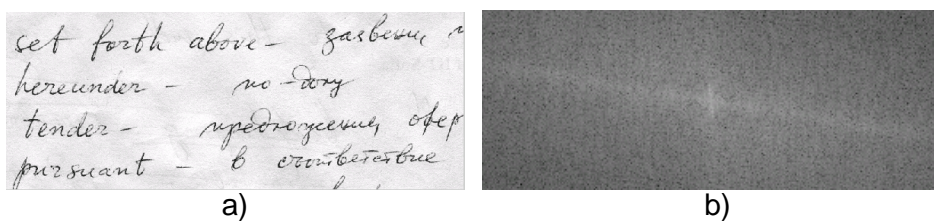 set forth above –
hereunder –
tender – предложение, офер
pursuant – в соответствие
a)
b)